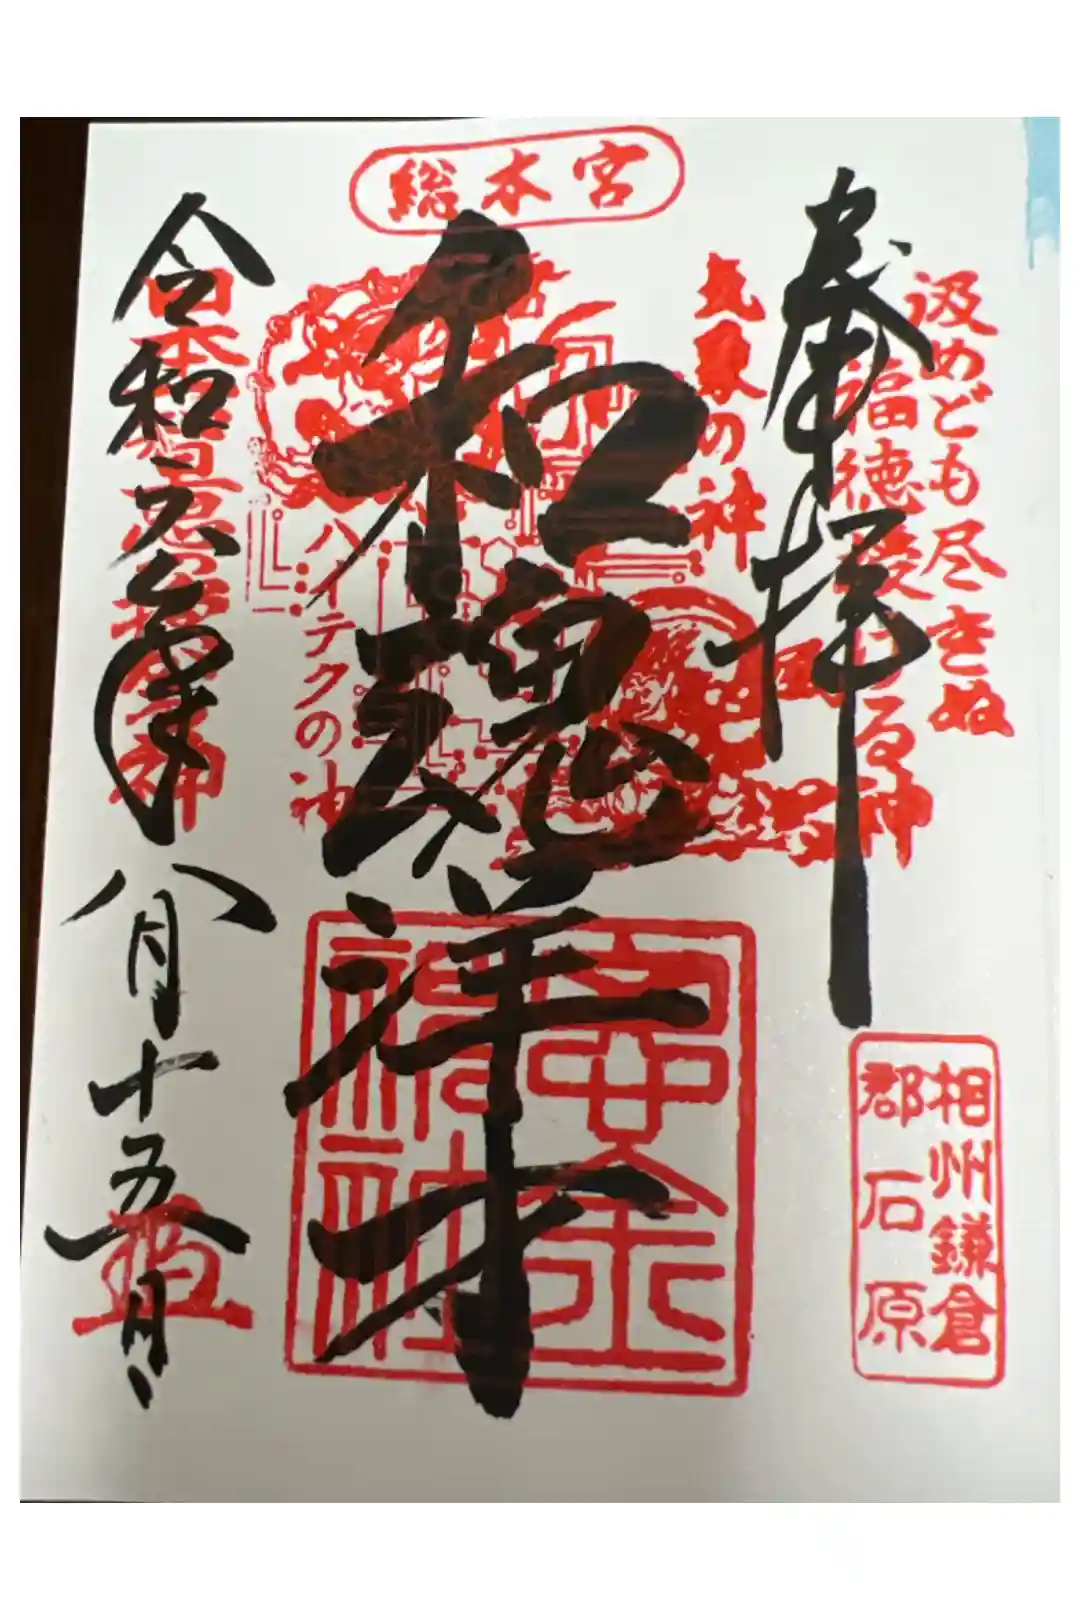 総本宮
汲めども尽きぬ
福徳授ける神
奉拝
気象の神
和魂洋才
ハイテクの神
令和六年八月十五日
相州鎌倉
郡石原